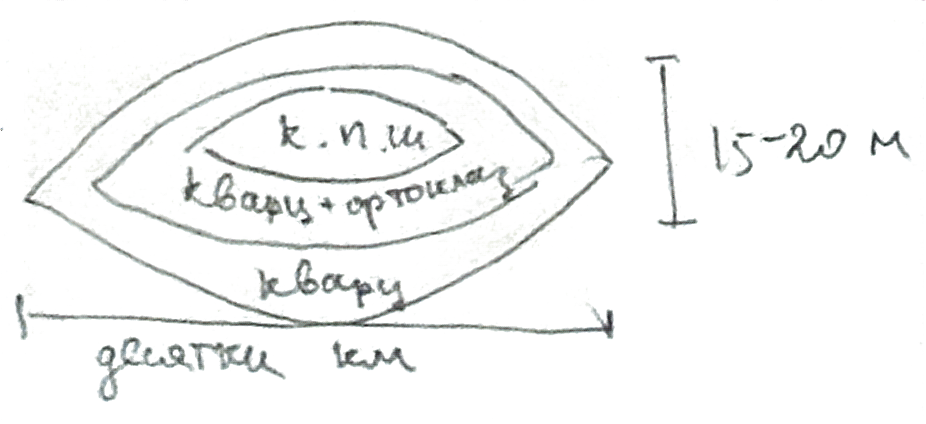 к.п.ш
кварц + ортоклаз
кварц
15-20 м
десятки км